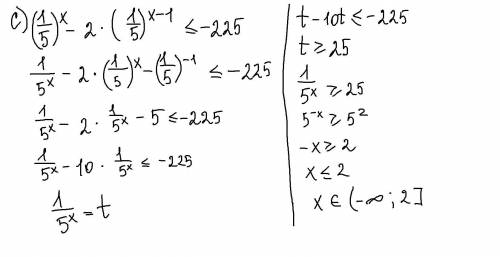 c) (1/5)^x - 2 · (1/5)^(x-1) ≤ -225
1/5^x - 2 · (1/5)^x - (1/5)^-1 ≤ -225
1/5^x - 2 · 1/5^x - 5 ≤ -225
1/5^x - 10 · 1/5^x ≤ -225
1/5^x = t
t - 10t ≤ -225
t ≥ 25
1/5^x ≥ 25
5^-x ≥ 5^2
-x ≥ 2
x ≤ 2
x ∈ (-∞; 2]